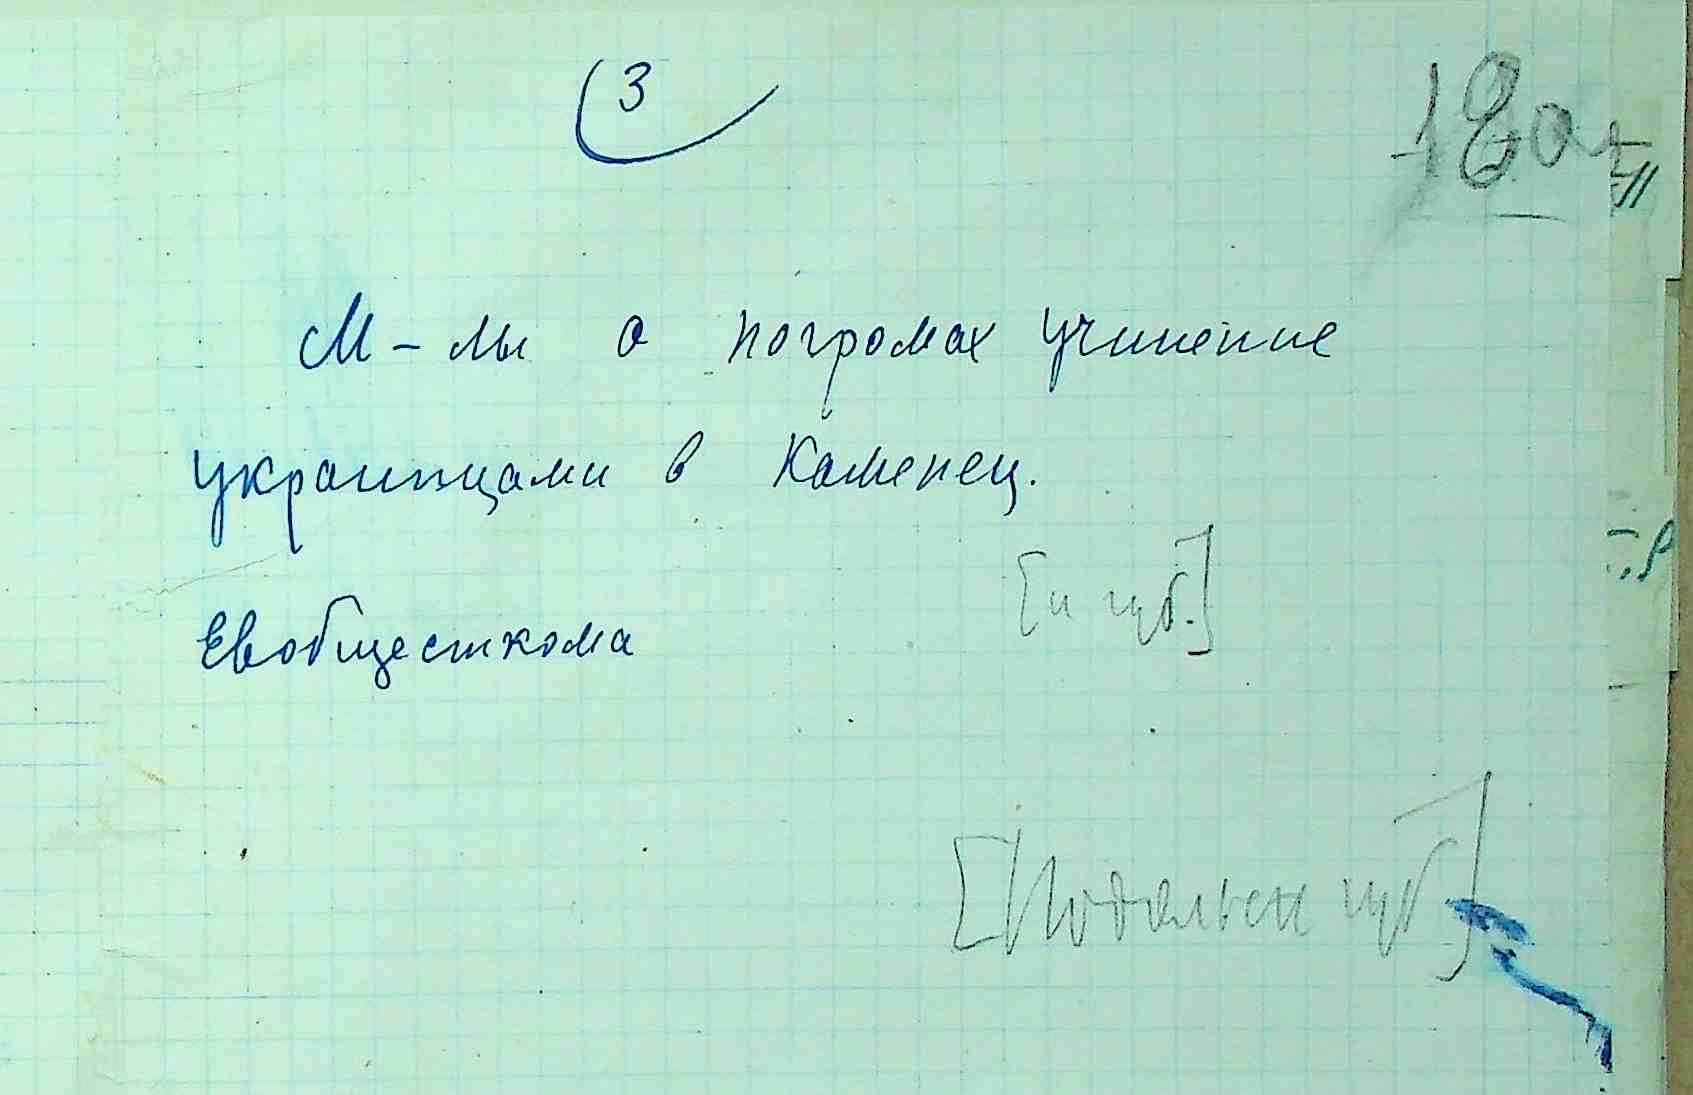 3
М-лы о погромах учинение
украинцами в Каменец.
[и губ.]
Евобщесткома
[Подольск губ]